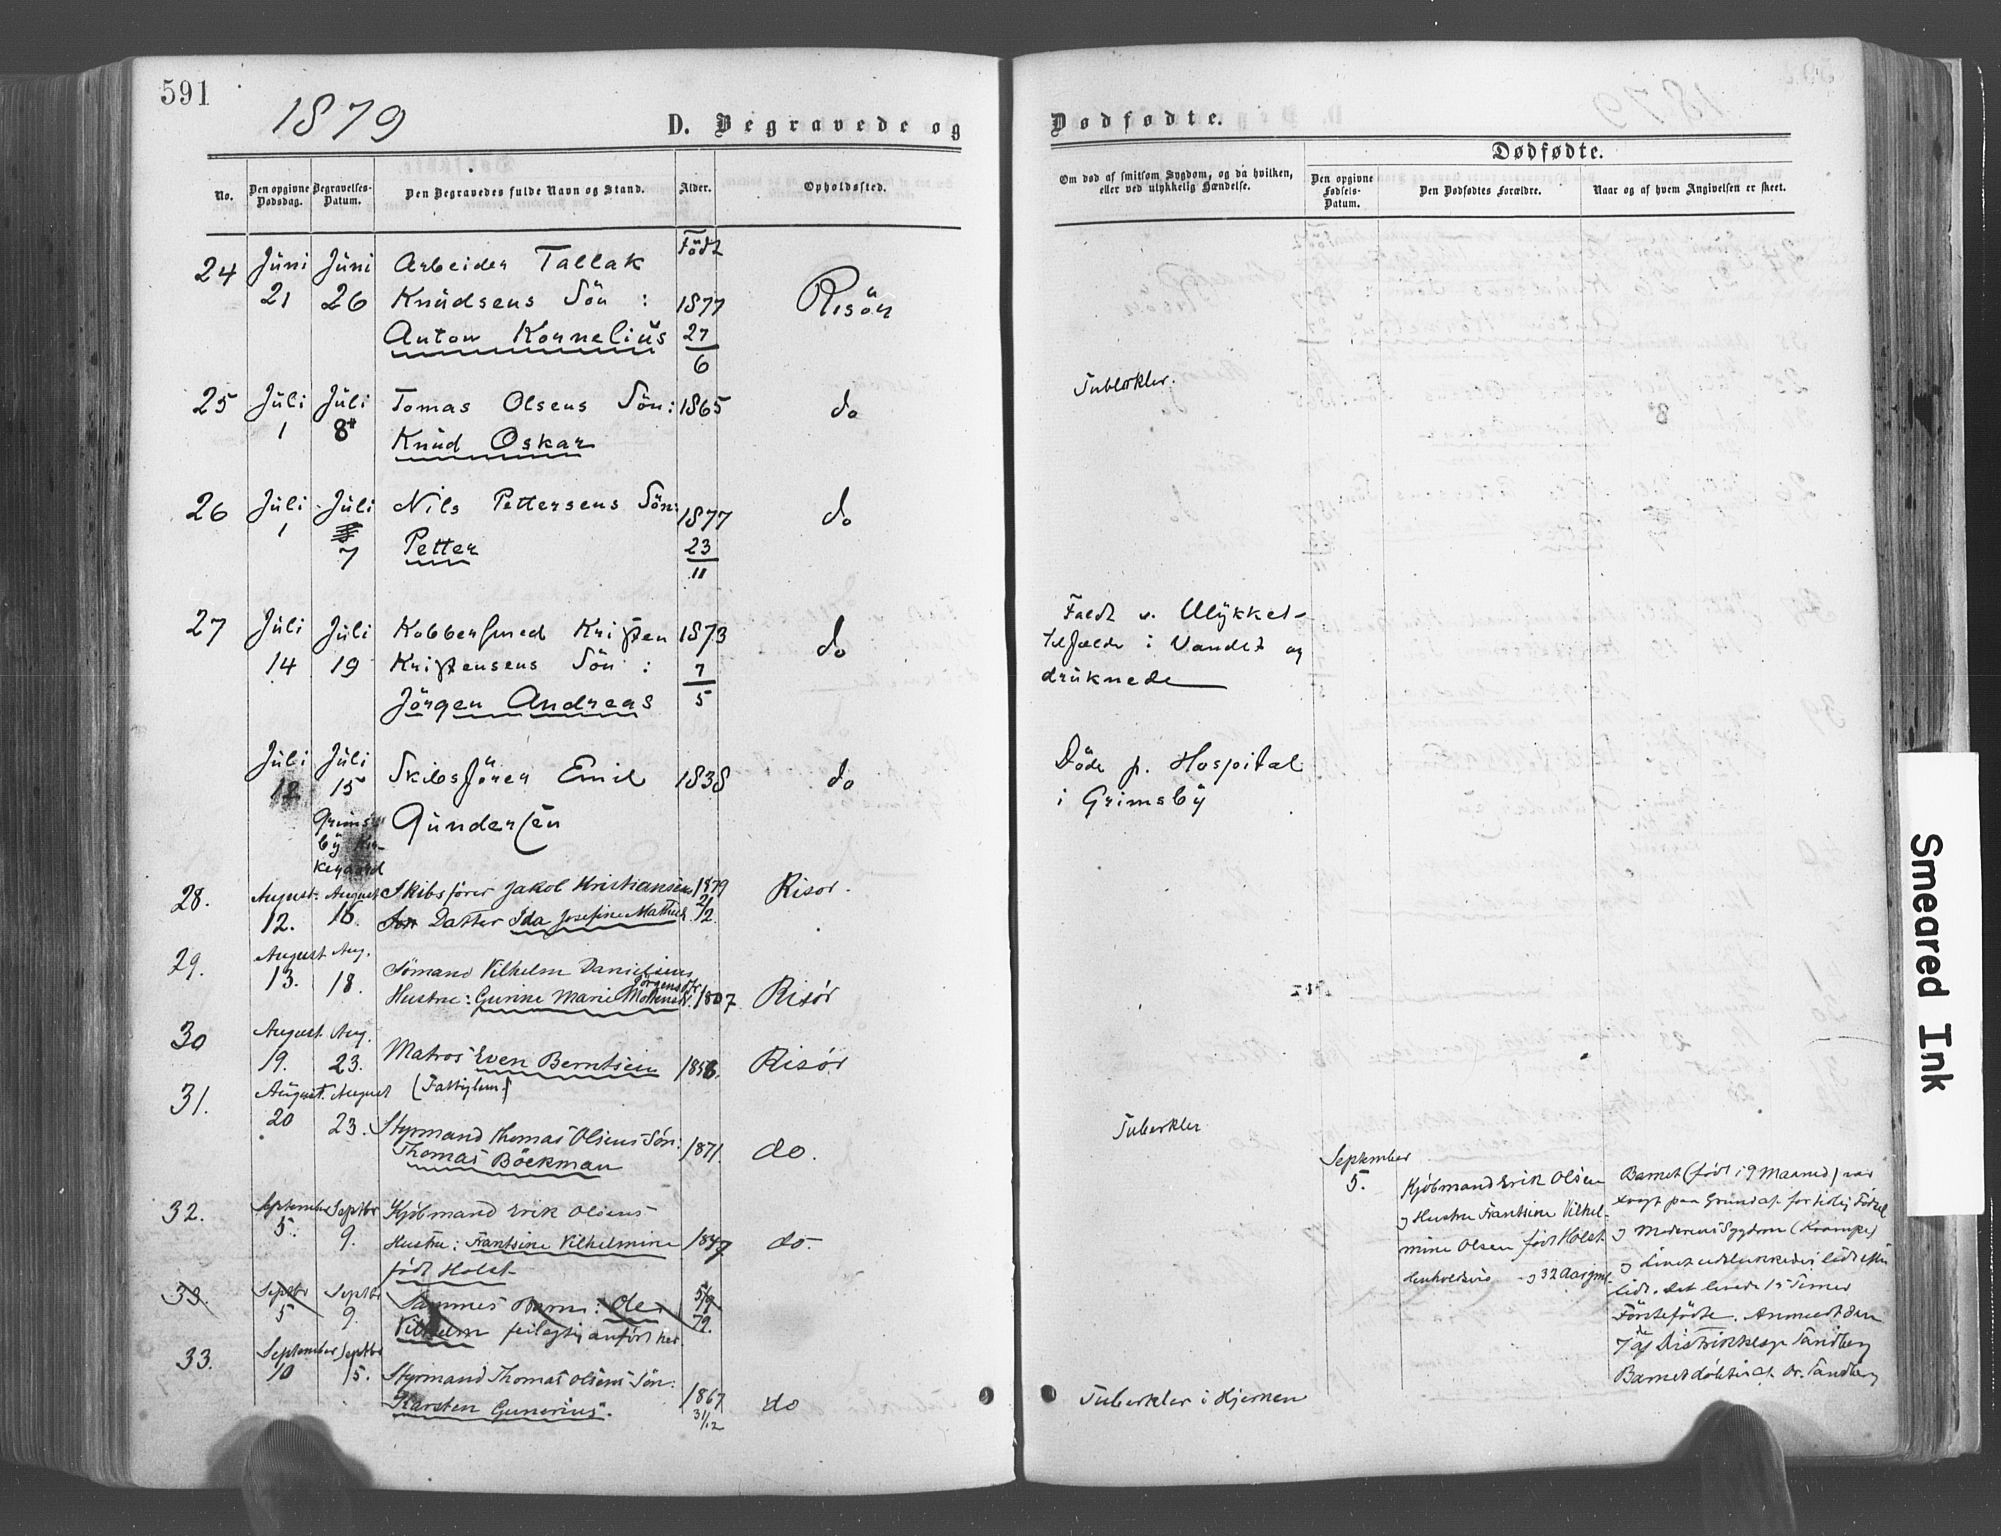 591
1879
D. Begravede og
No.
Den opgivne Dødsdag.
Begravelses-Datum.
Den Begravedes fulde Navn og Stand.
Alder.
Opholdssted.
24 Juni Juni Arbeider Tallak Födt
21 26 Knudsens Sön : 1877 Risör
Anton Kornelius 27
6
25 Juli Juli Tomas Olsens Sön: 1865 do
1 8
Knud Oskar
26 Juli Juli Nils Pettersens Sön: 1877 do
1 7 Petter 23
11
27 Juli Juli Kobbersmed Kristen 1873 do
14 19 Kristensens Sön : 7
Jörgen Andreas 5
Juli Juli Skibsförer Emil 1838 do
12 15
Grims- Gundersen
by Kir-
kegaard
28. August. August Skibsfører Jakob Kristiansens 1879 Risør.
12. 18. Datter Ida Josefine Mathea 21/2.
29. August Aug. Sømand Vilhelm Danielsens
13. 18. Hustru: Gunine Marie Jörgensdtr. 1807 Risør
30 August. Aug.
19. 23. Matros Even Berntsen 1858. Risør
31. August. August (Fattiglem)
20 23. Styrmand Thomas Olsens Søn: 1871. do.
Thomas Böckman
32. September Septbr Kjøbmand Erik Olsens
5. 9. Hustru: Frantsine Vilhelmine 1847 do.
født Holst
33. Septbr Septbr Sammes Barn: Ole 5/9
5 9. Vilhelm feilagtig anført her 79.
33. September Septbr
10 15. Styrmand Thomas Olsens Søn:
Karsten Gunerius. 1867 do
31/12
Dødfødte.
Om død af smitsom Sygdom, og da hvilken,
eller ved ulykkelig Hændelse.
Dødfødte.
Den opgivne Fødsels-Datum.
Den Dødfødtes Forældre.
Naar og af hvem Angivelsen er skeet.
Tuberkler.
Faldt v. Ulykkes-
tilfælde i Vandet og
druknede
Döde p. Hospital
i Grimsby
Tuberkler
September
5.
Kjøbmand Erik Olsen
og Hustru Frantsine Vilhel-
mine Olsen født Holst
og 32 Aar gml.
Barnet (født i 9 Maaned) var
svagt paa Grund af for tidlig Fødsel
og Moderens Sygdom (Krampe)
og Livet udslukkedes lidt efter
lidt. Det levede 15 Timer
Förstefödte. Anmeldt den
7de af Distriktslæge Sandberg
Barnet døbt af Dr. Sandberg
Tuberkler i Hjernen
Smeared Ink